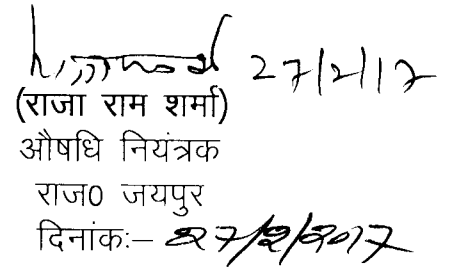 27/2/17
(राजा राम शर्मा)
औषधि नियंत्रक
राज0 जयपुर
दिनांकः– 27/2/2017